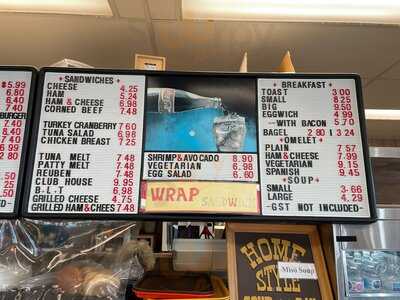 $5.99
6.80
6.40
7.40
BURGER
7.40
8.40
SANDWICHES
CHEESE 4.25
HAM 5.24
HAM & CHEESE 6.98
CORNED BEEF 7.48
TURKEY CRANBERRY 7.60
TUNA SALAD 6.98
CHICKEN BREAST 7.25
TUNA MELT 7.48
PATTY MELT 7.48
REUBEN 7.48
CLUB HOUSE 9.95
B-L-T 6.98
GRILLED CHEESE 4.75
GRILLED HAM&CHEES 7.48
SHRIMP&AVOCADO 8.90
VEGETARIAN 6.98
EGG SALAD 6.60
WRAP SANDWICH
BREAKFAST
TOAST 3.00
SMALL 8.25
BIG 9.50
EGGWICH 4.99
-WITH BACON 5.70
BAGEL 2.80 | 3.24
OMELET
PLAIN 7.57
HAM&CHEESE 7.99
VEGETARIAN 9.15
SPANISH 9.45
SOUP
SMALL 3.66
LARGE 4.29
-GST NOT INCLUDED-
HOME
STYLE
Miso Soup